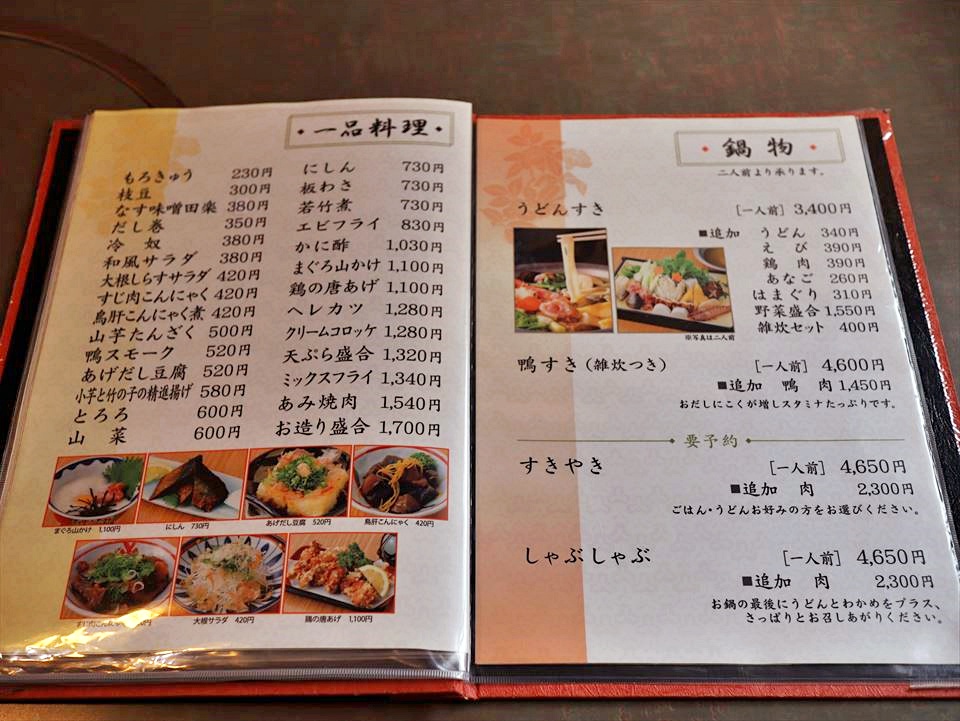 ・一品料理・
もろきゅう 230円
枝豆 300円
なす味噌田楽 380円
だし巻 350円
冷奴 380円
和風サラダ 380円
大根しらすサラダ 420円
すじ肉こんにゃく 420円
鳥肝こんにゃく煮 420円
山芋たんざく 500円
鴨スモーク 520円
あげだし豆腐 520円
小芋と竹の子の精進揚げ 580円
とろろ 600円
山菜 600円
にしん 730円
板わさ 730円
若竹煮 730円
エビフライ 830円
かに酢 1,030円
まぐろ山かけ 1,100円
鶏の唐あげ 1,100円
ヘレカツ 1,280円
クリームコロッケ 1,280円
天ぷら盛合 1,320円
ミックスフライ 1,340円
あみ焼肉 1,540円
お造り盛合 1,700円
まぐろ山かけ 1,100円
にしん 730円
あげだし豆腐 520円
鳥肝こんにゃく 420円
大根サラダ 420円
鶏の唐あげ 1,100円
・鍋物・
二人前より承ります。
うどんすき [一人前] 3,400円
■追加 うどん 340円
えび 390円
鶏肉 390円
あなご 260円
はまぐり 310円
野菜盛合 1,550円
雑炊セット 400円
※写真は二人前
鴨すき(雑炊つき) [一人前] 4,600円
■追加 鴨肉 1,450円
おだしにこくが増しスタミナたっぷりです。
要予約
すきやき [一人前] 4,650円
■追加 肉 2,300円
ごはん・うどんお好みの方をお選びください。
しゃぶしゃぶ [一人前] 4,650円
■追加 肉 2,300円
お鍋の最後にうどんとわかめをプラス、
さっぱりとお召しあがりください。